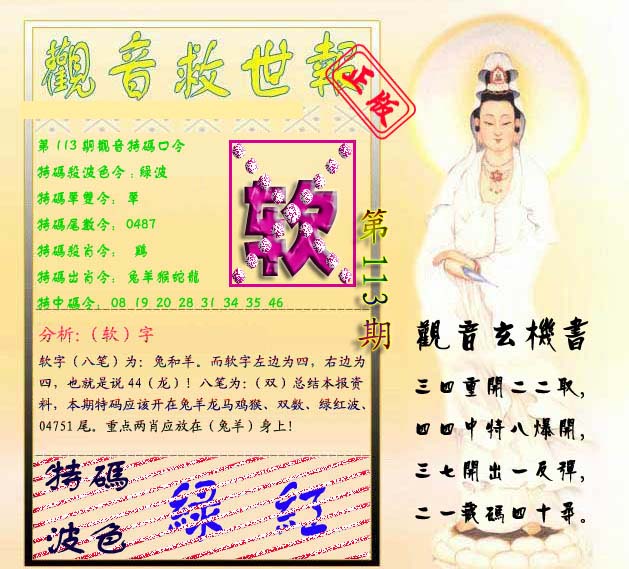 觀音救世報
正版
第113期觀音特碼口令
特碼殺波色令:綠波
特碼單雙令: 單
特碼尾數令: 0487
特碼殺肖令: 鷄
特碼出肖令: 兔羊猴蛇龍
特中碼令: 08 19 20 28 31 34 35 46
软
第113期
分析:（软）字
软字（八笔）为：兔和羊。而软字左边为四，右边为
四，也就是说44（龙）！八笔为：（双）总结本报资
料，本期特码应该开在兔羊龙马鸡猴、双数、绿红波、
04751尾。重点两肖应放在（兔羊）身上！
特碼
波色
綠 紅
觀音玄機書
三四重開二二取，
四四中特八爆開，
三七開出一反彈，
二一藏碼四十尋。